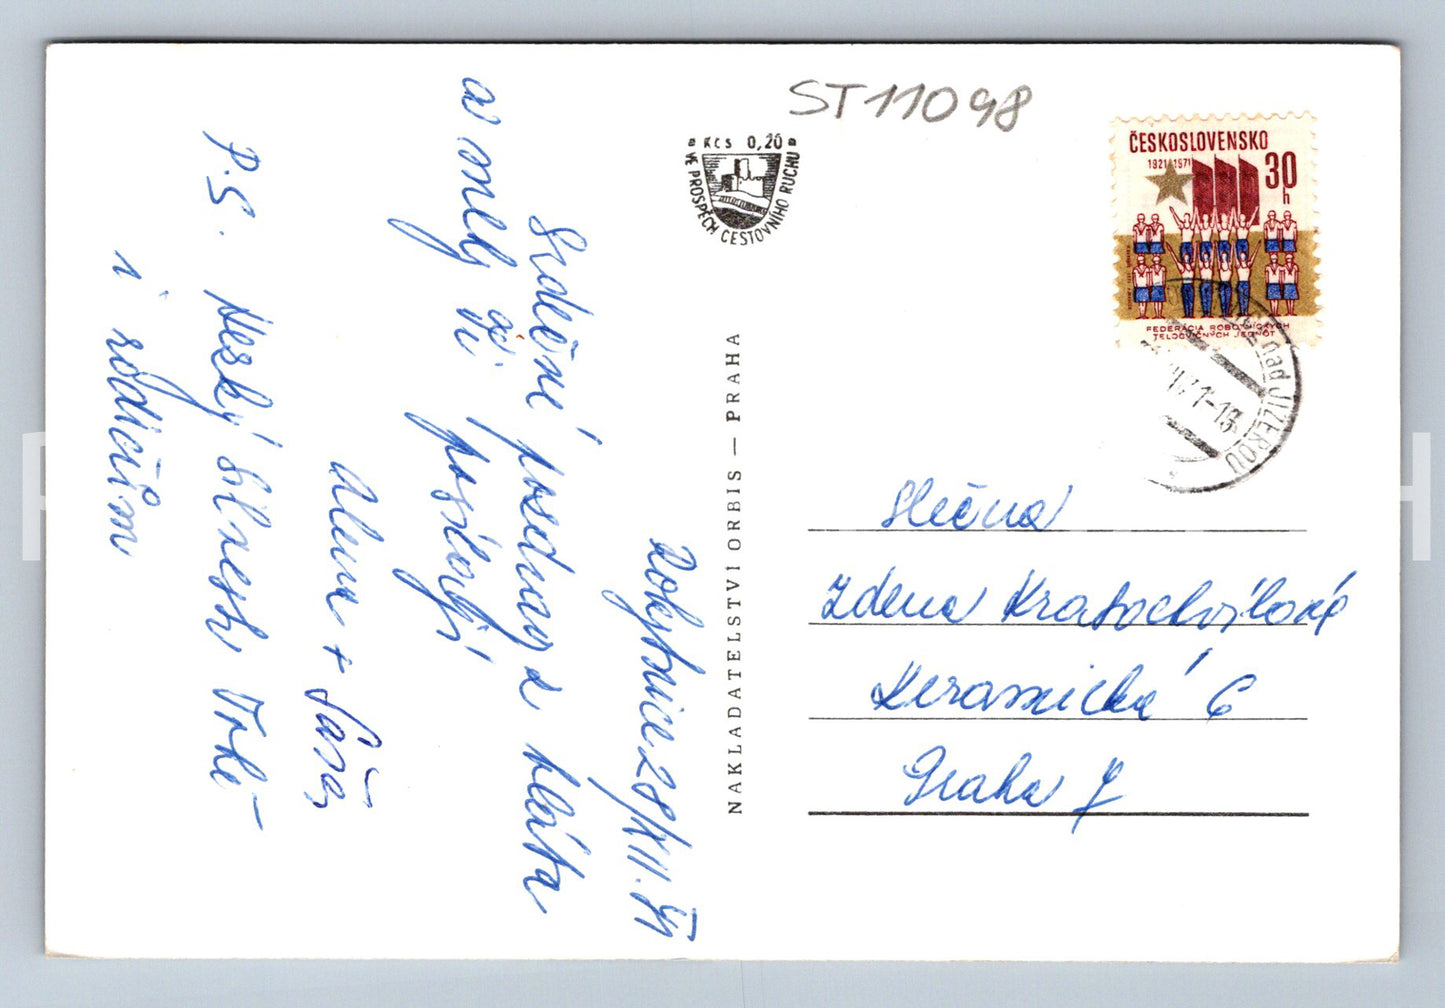 ST11098
KČS 0,20
VE PROSPĚCH CESTOVNÍHO RUCHU
ČESKOSLOVENSKO
1921 1971
30
h
FEDERÁCIA ROBOTNÍCKYCH
TELOCVIČNÝCH JEDNÔT
nad JIZEROU
71-18
NAKLADATELSTVÍ ORBIS — PRAHA
Rokytnice 28/XII. 71
Srdečné pozdravy z bláta
a vody Ti
posílají
Alena + Saša
P.S. Hezký Silvestr Tobě
i rodičům
Slečna
Zdena Kratochvílová
Keramická 6
Praha 7